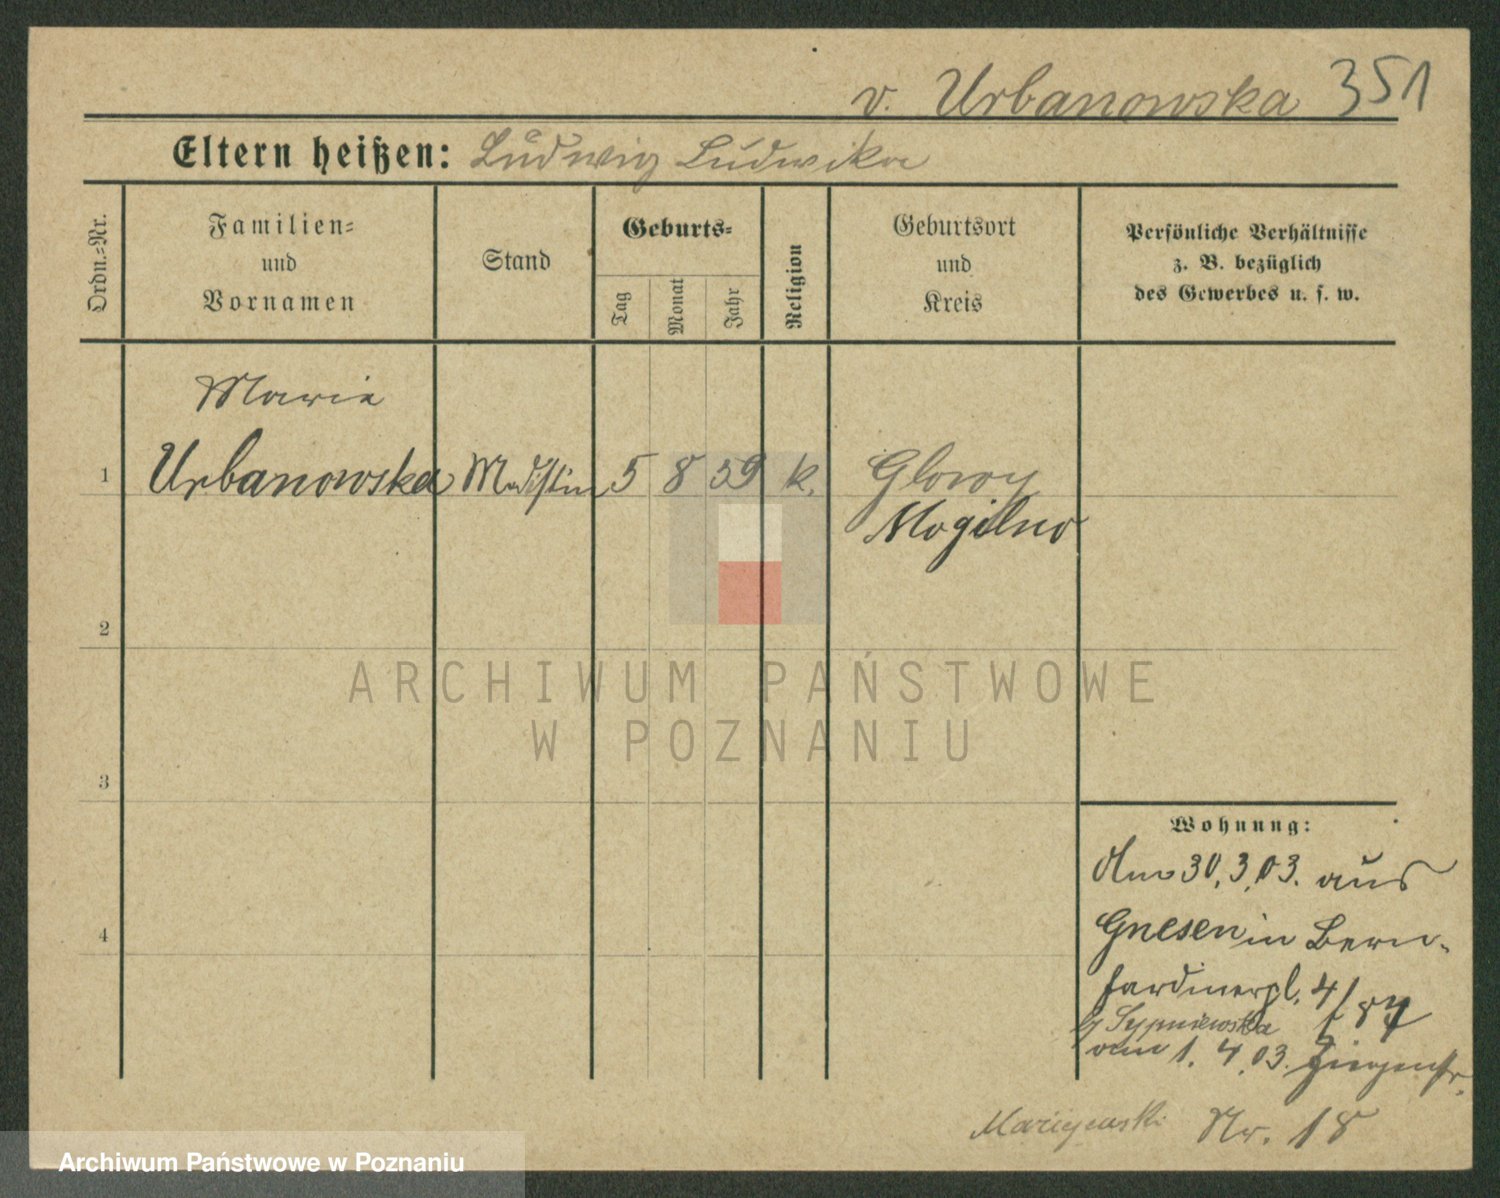 v. Urbanowska 351
Eltern heißen: Ludwig Ludwika
Ordn.-Nr.
Familien-
und
Vornamen
Stand
Geburts-
Tag
Monat
Jahr
Religion
Geburtsort
und
Kreis
Persönliche Verhältnisse
z. B. bezüglich
des Gewerbes u. s. w.
Marie
1 Urbanowska Modistin 5 8 59 k. Glowy
Mogilno
2
ARCHIWUM PAŃSTWOWE
W POZNANIU
3
Wohnung:
Am 30.3.03. aus
4 Gnesen in Bern-
hardinerpl. 4/
b/ Sypniewska
am 1. 4. 03. Ziegenstr.
Nr. 18
Archiwum Państwowe w Poznaniu